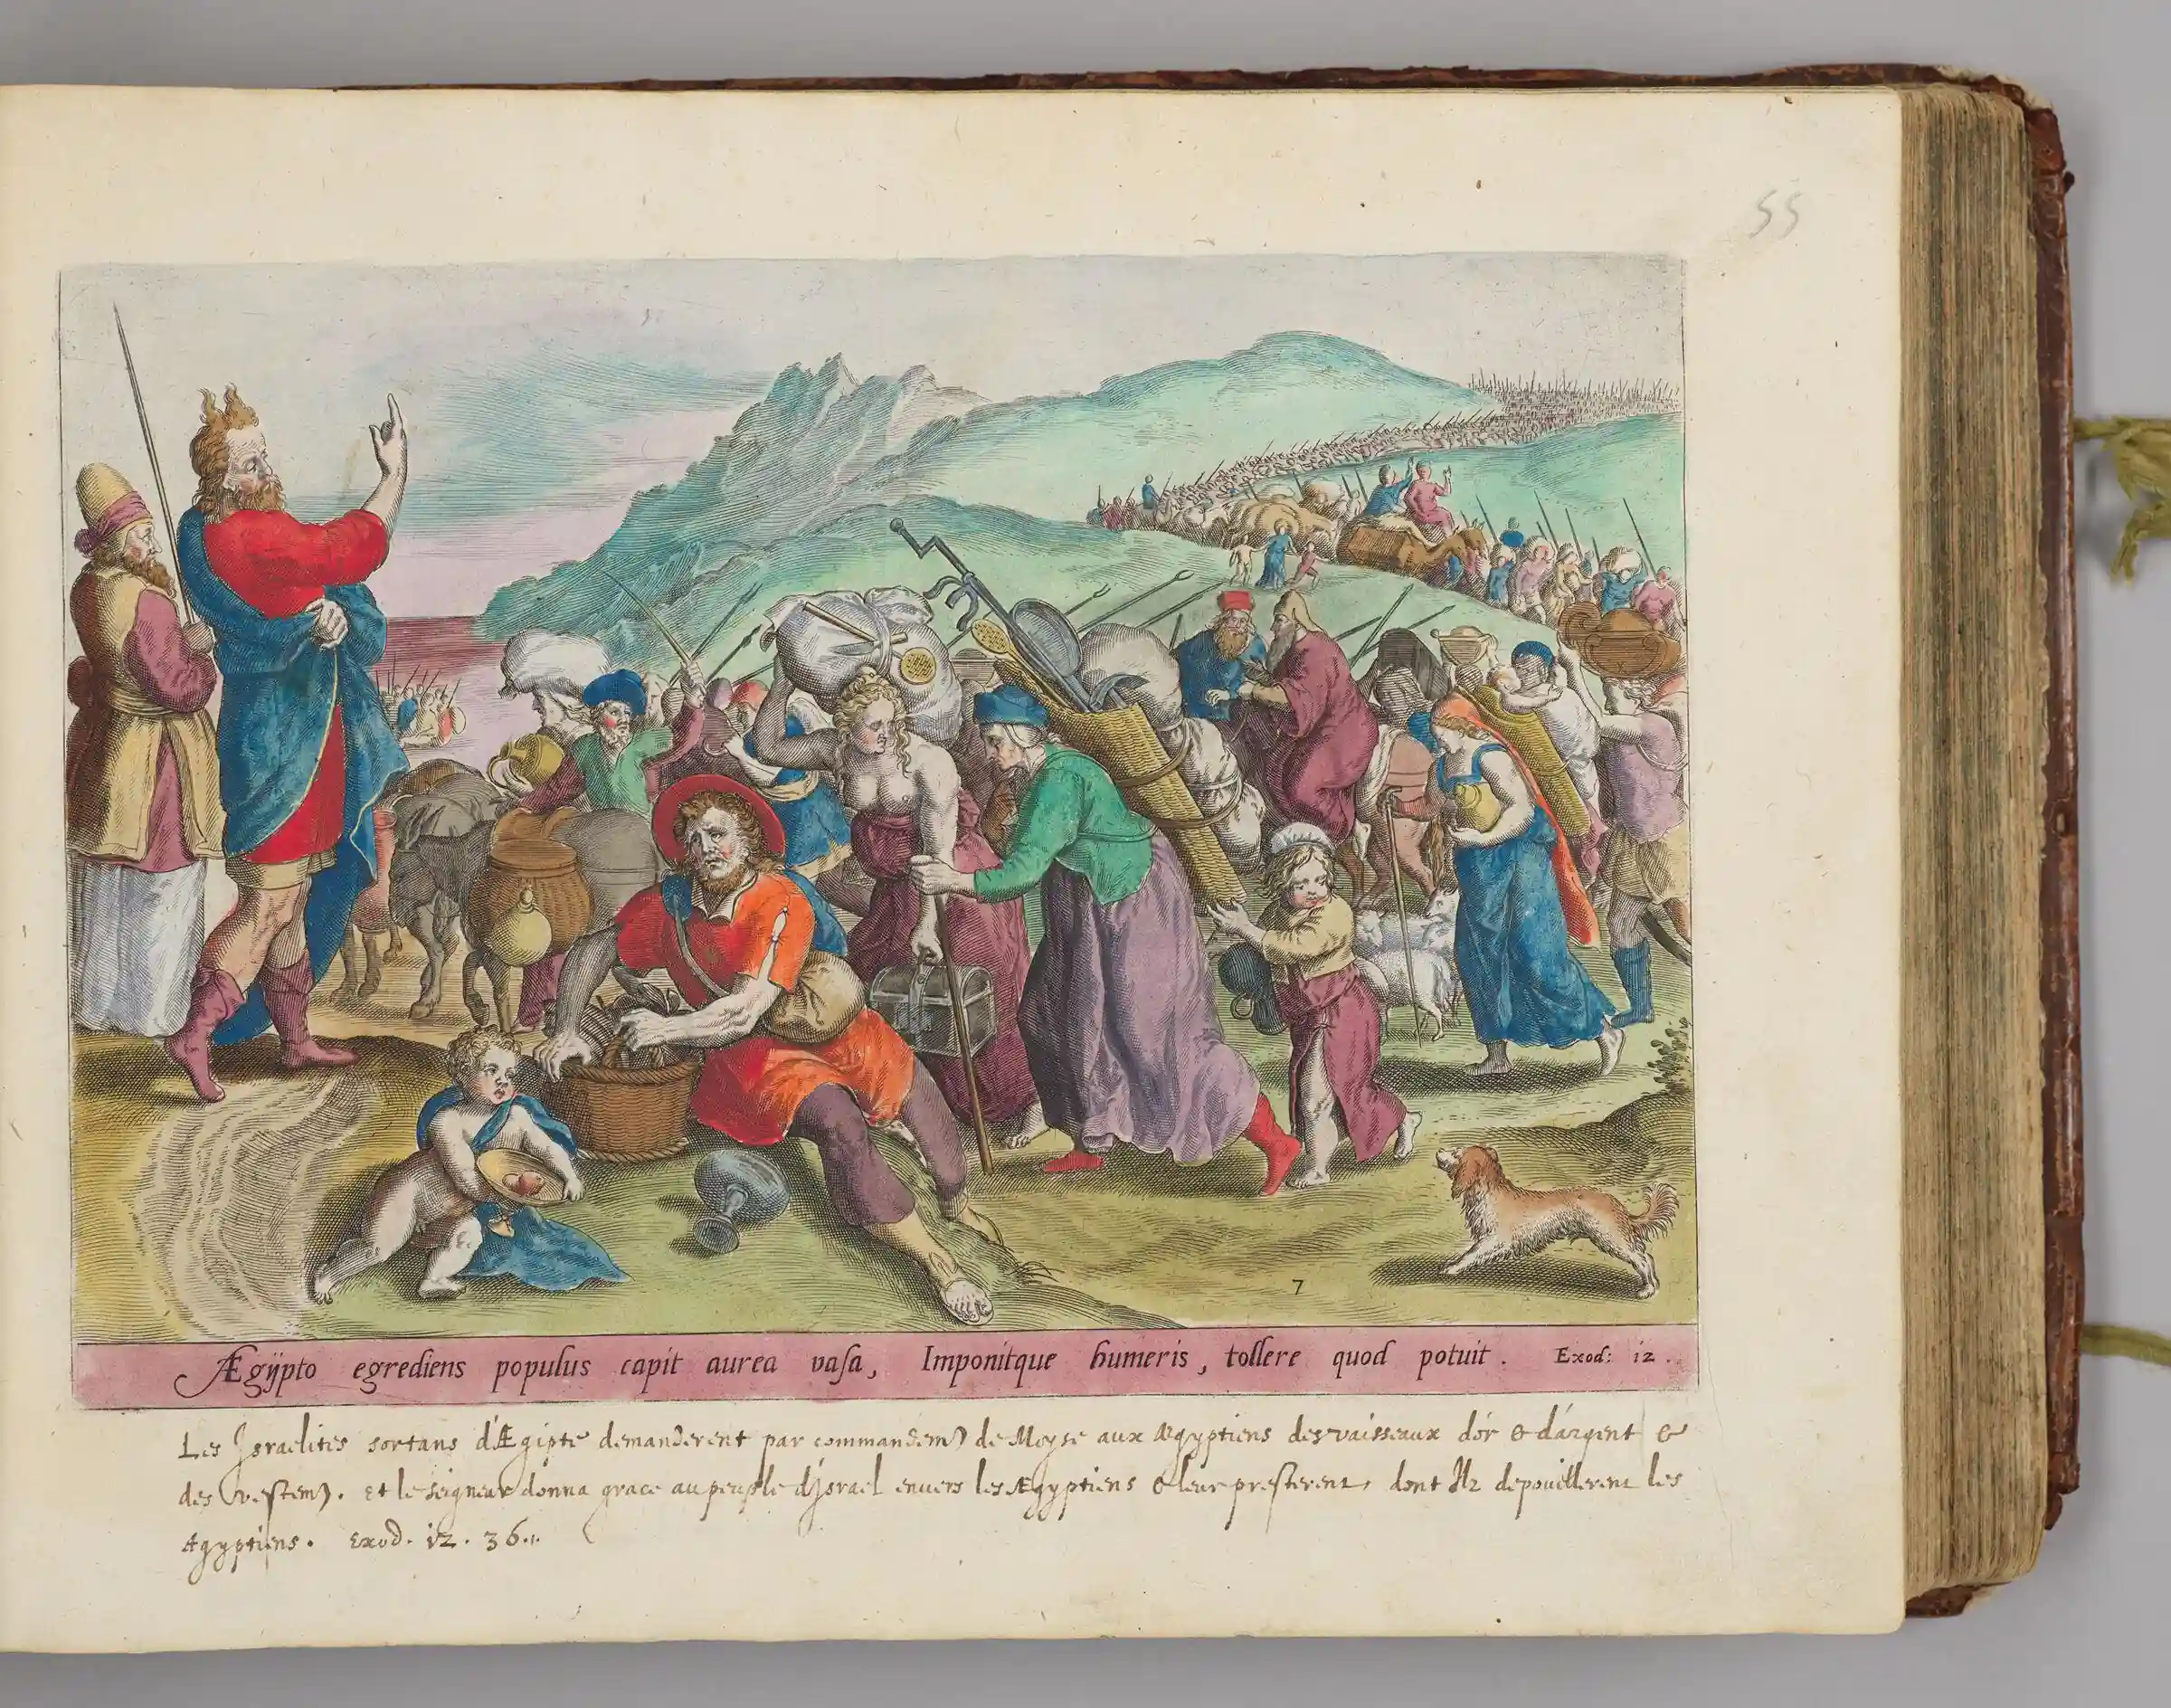 55
7
Ægÿpto egrediens populus capit aurea vasa, Imponitque humeris, tollere quod potuit. Exod: 12.
Les Israelites sortans d'Ægipte demanderent par commandem) de Moyse aux Ægyptiens des vaisseaux d'or & d'argent &
des vestem). et le seigneur donna grace au peuple d'Israel envers les Ægyptiens & leur presterent, dont Ilz depouillerent les
Ægyptiens. Exod. 12. 36.